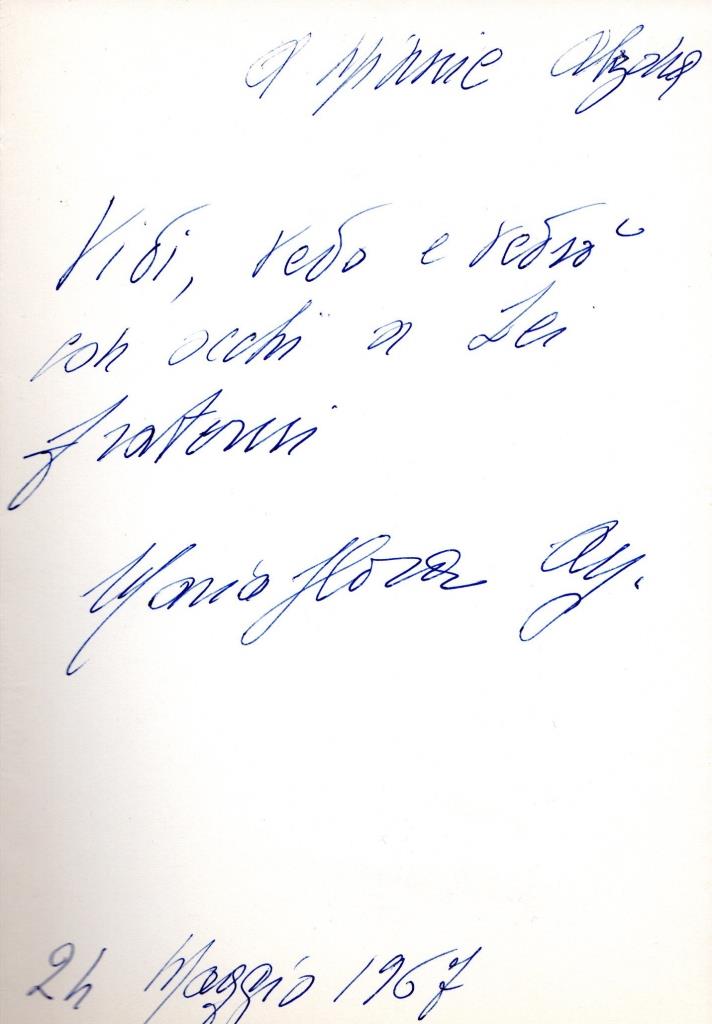 A Minnie Alzona
Vidi, vedo e vedrò
con occhi a Lei
fraterni
Maria Flora
24 Maggio 1967